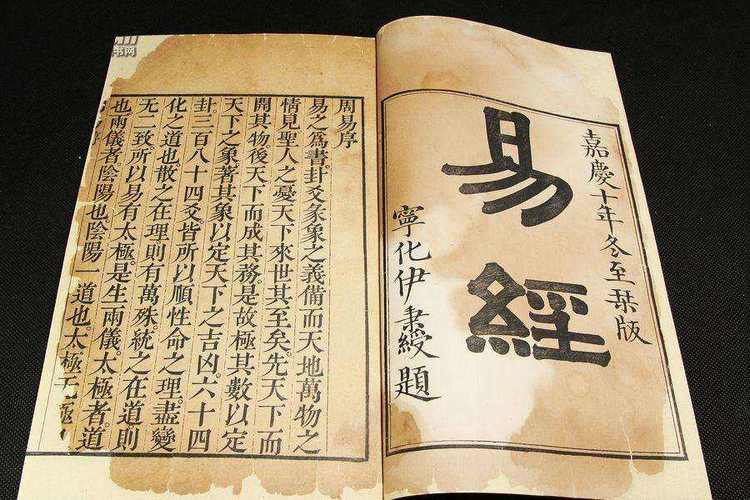 嘉慶十年冬至栞版
易經
寧化伊秉綬題
周易序
易之爲書卦爻彖象之義備而天地萬物之
情見聖人之憂天下來世其至矣先天下而
開其物後天下而成其務。是故極其數以定
天下之象著其象以定天下之吉凶六十四
卦。三百八十四爻。皆所以順性命之理。盡變
化之道也散之在理則有萬殊。統之在道則
无二致所以易有太極。是生兩儀。太極者。道
也兩儀者陰陽也陰陽一道也。太極无極
书网